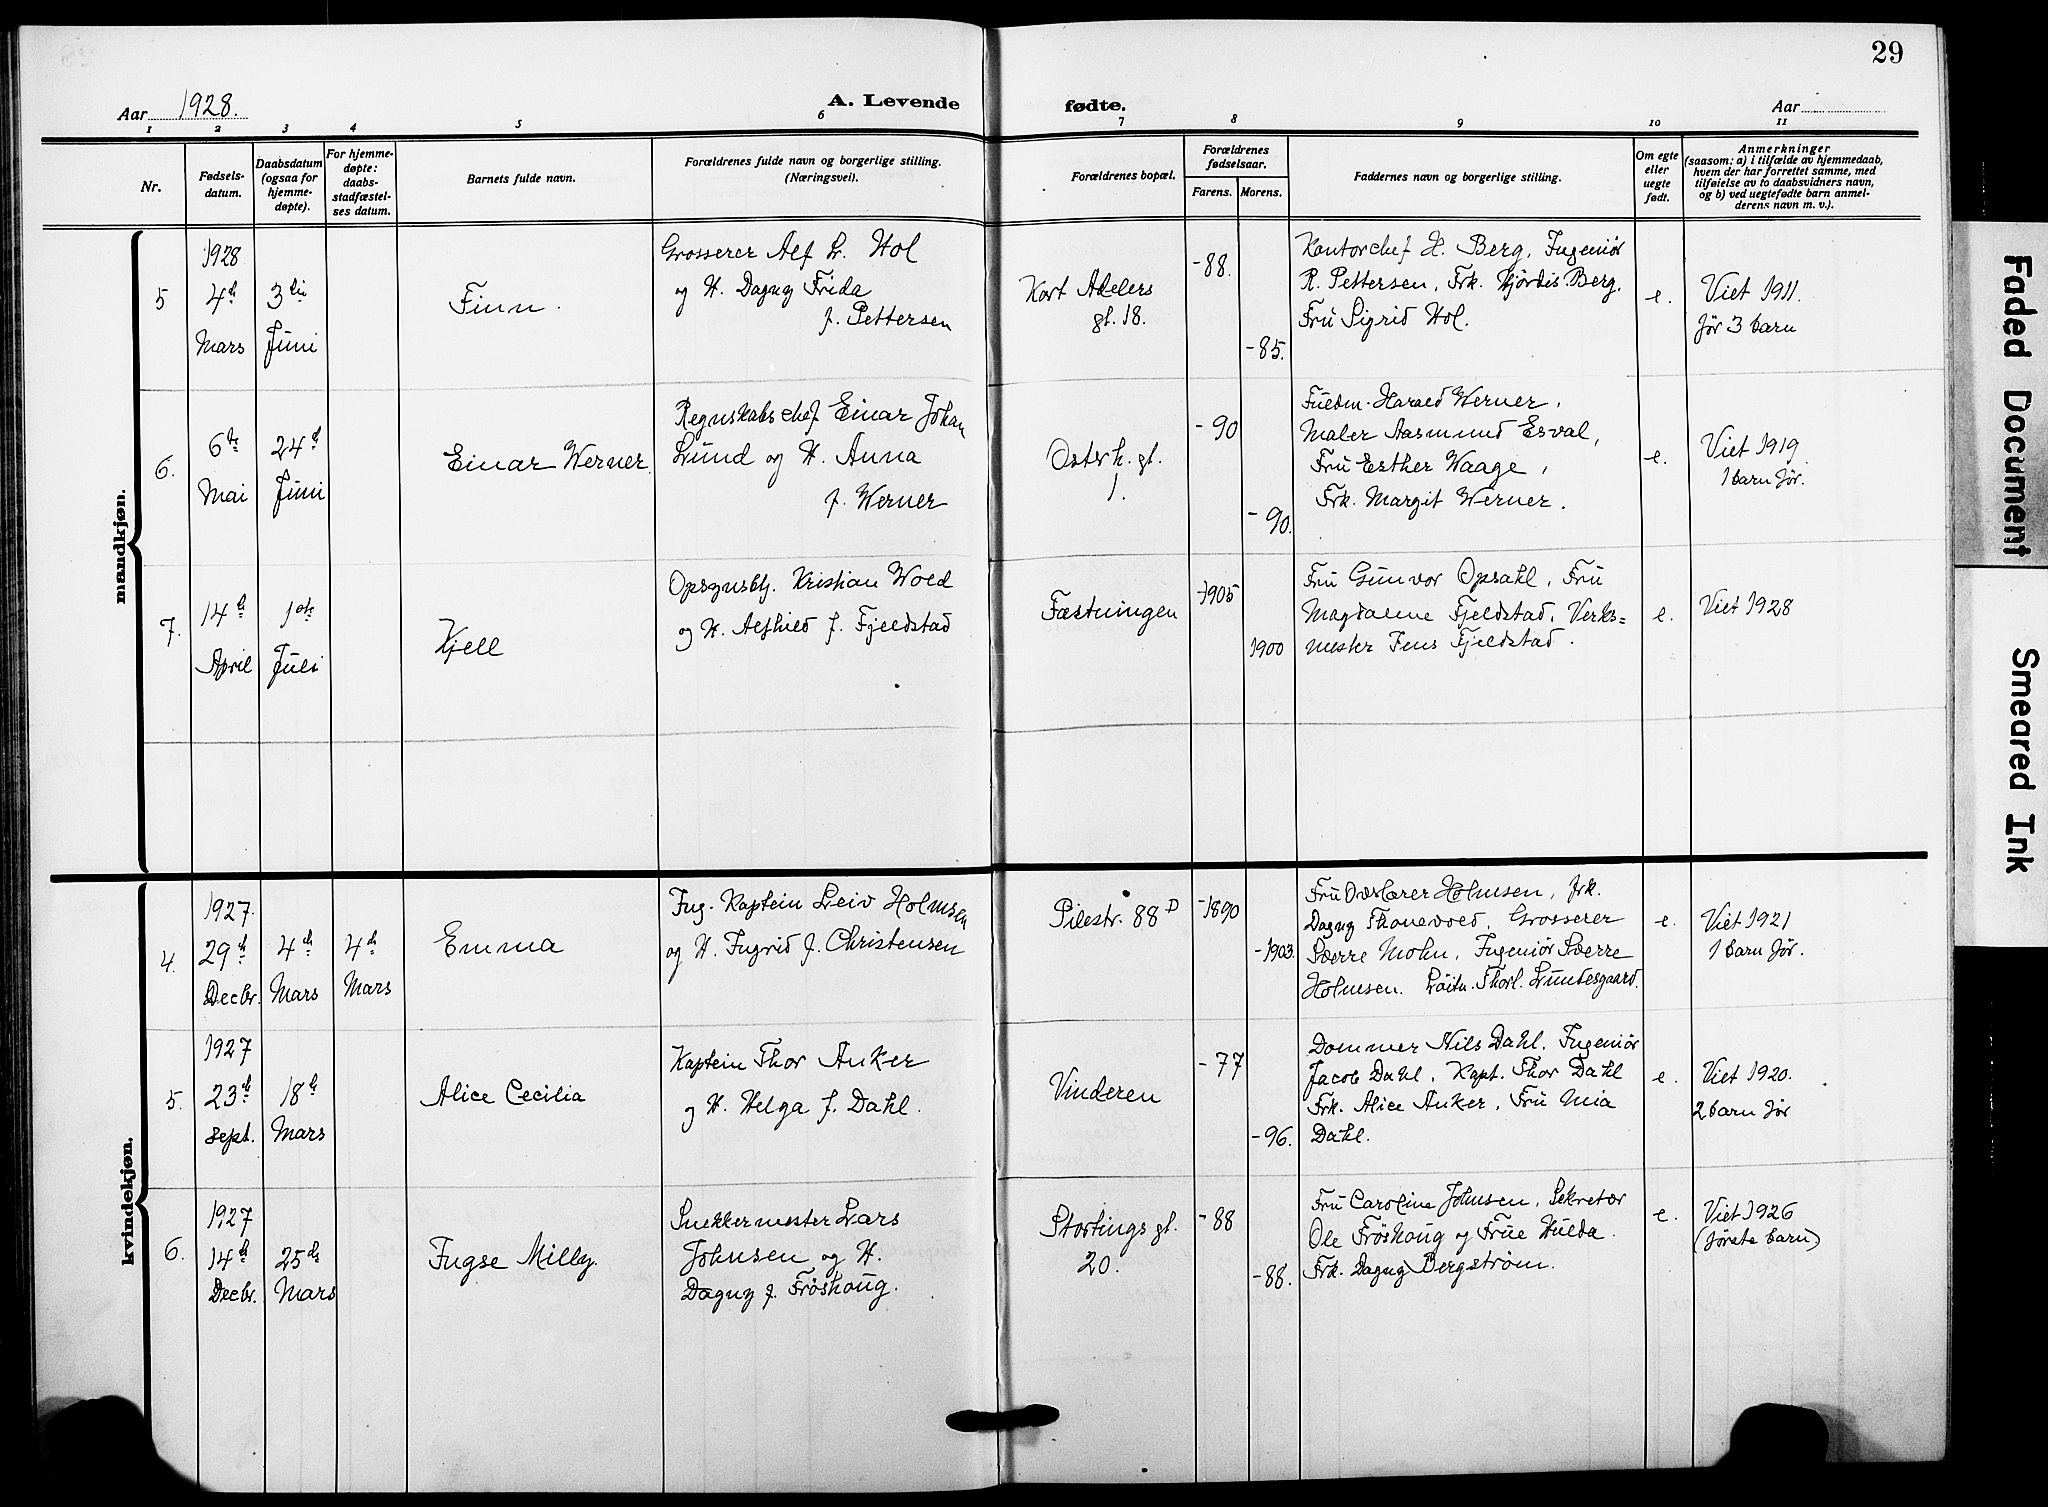 29
Aar 1928.
A. Levende fødte.
Aar
1 2 3 4 5 6 7 8 9 10 11
Nr.
Fødsels-
datum.
Daabsdatum
(ogsaa for
hjemme-
døpte).
For hjemme-
døpte:
daabs-
stadfæstel-
ses datum.
Barnets fulde navn.
Forældrenes fulde navn og borgerlige stilling.
(Næringsvei).
Forældrenes bopæl.
Forældrenes
fødselsaar.
Farens. Morens.
Faddernes navn og borgerlige stilling.
Om egte
eller
uegte
født.
Anmerkninger
(saasom: a) i tilfælde av hjemmedaab,
hvem der har forrettet samme, med
tilføielse av to daabsvidners navn,
og b) ved uegtefødte barn anmel-
derens navn m. v.).
mandkjøn.
5
1928
4de
Mars
3die
Juni
Finn.
Grosserer Alf L. Hol
og H. Dagny Frida
f. Pettersen
Kort Adelers
gt. 18.
-88.
-85.
Kontorchef H. Berg, Ingeniør
R. Pettersen, Frk. Hjördis Berg,
Fru Sigrid Hol.
e.
Viet 1911.
før 3 barn
6.
6te
Mai
24de
Juni
Einar Werner
Regnskabschef Einar Johan
Lund og H. Anna
f. Werner
Osterh. gt.
1.
-90
-90.
Fuldm. Harald Werner,
Maler Aasmund Esval,
Fru Esther Waage,
Frk. Margit Werner.
e.
Viet 1919
1 barn før.
7.
14de
April
1ste
Juli
Kjell
Opsynsbtj. Kristian Wold
og H. Alfhild f. Fjeldstad
Fæstningen
-1905
1900
Fru Gunvor Opsahl, Fru
Magdalene Fjeldstad, Verks=
mester Jens Fjeldstad.
e.
Viet 1928
kvindekjøn.
4.
1927.
29de
Decbr.
4de
Mars
4de
Mars
Emma
Ing. Kaptein Leiv Holmsen
og H. Ingrid f. Christensen
Pilestr. 88 D
-1890
-1903.
Fru Overlærer Holmsen, frk.
Dagny Thonevold, Grosserer
Sverre Mohn, Ingeniør Sverre
Holmsen. Löitn. Thorl. Lundesgaard.
e.
Viet 1921
1 barn før.
5.
1927
23de
Sept.
18de
Mars
Alice Cecilia
Kaptein Thor Anker
og H. Helga f. Dahl.
Vinderen
-77
-96.
Dommer Nils Dahl, Ingeniør
Jacob Dahl, Kapt. Thor Dahl
Frk. Alice Anker, Fru Mia
Dahl.
e.
Viet 1920.
2 barn før
6.
1927
14de
Decbr.
25de
Mars
Ingse Milly.
Snekkermester Lars
Johnsen og H.
Dagny f. Fröshoug.
Stortings gt.
20.
-88
-88.
Fru Caroline Johnsen, Sekretær
Ole Fröshoug og Frue Hulda.
Frk. Dagny Bergström.
e.
Viet 1926
(første barn)
Faded Document
Smeared Ink